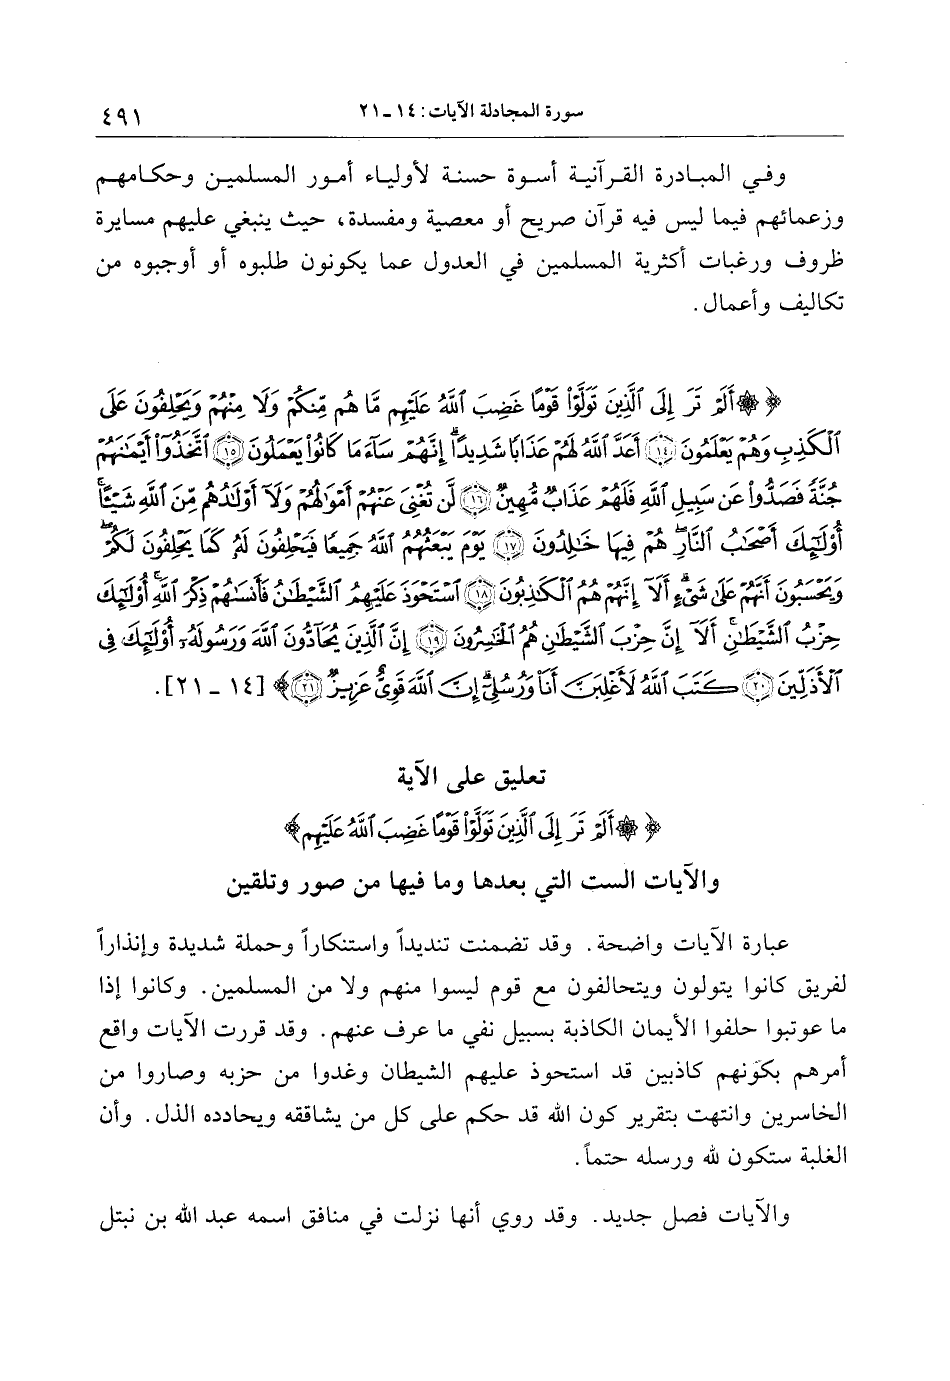 سورة المجادلة الآيات: ١٤ ـ ٢١
٤٩١
وفي المبادرة القرآنية أسوة حسنة لأولياء أمور المسلمين وحكامهم
وزعمائهم فيما ليس فيه قرآن صريح أو معصية ومفسدة، حيث ينبغي عليهم مسايرة
ظروف ورغبات أكثرية المسلمين في العدول عما يكونون طلبوه أو أوجبوه من
تكاليف وأعمال.
﴿ ۞ أَلَمْ تَرَ إِلَى ٱلَّذِينَ تَوَلَّوْا۟ قَوْمًا غَضِبَ ٱللَّهُ عَلَيْهِم مَّا هُم مِّنكُمْ وَلَا مِنْهُمْ وَيَحْلِفُونَ عَلَى
ٱلْكَذِبِ وَهُمْ يَعْلَمُونَ ١٤ أَعَدَّ ٱللَّهُ لَهُمْ عَذَابًا شَدِيدًا ۖ إِنَّهُمْ سَآءَ مَا كَانُوا۟ يَعْمَلُونَ ١٥ ٱتَّخَذُوٓا۟ أَيْمَٰنَهُمْ
جُنَّةً فَصَدُّوا۟ عَن سَبِيلِ ٱللَّهِ فَلَهُمْ عَذَابٌ مُّهِينٌ ١٦ لَّن تُغْنِىَ عَنْهُمْ أَمْوَٰلُهُمْ وَلَآ أَوْلَٰدُهُم مِّنَ ٱللَّهِ شَيْـًٔا ۚ
أُو۟لَٰٓئِكَ أَصْحَٰبُ ٱلنَّارِ ۖ هُمْ فِيهَا خَٰلِدُونَ ١٧ يَوْمَ يَبْعَثُهُمُ ٱللَّهُ جَمِيعًا فَيَحْلِفُونَ لَهُۥ كَمَا يَحْلِفُونَ لَكُمْ ۖ
وَيَحْسَبُونَ أَنَّهُمْ عَلَىٰ شَىْءٍ ۚ أَلَآ إِنَّهُمْ هُمُ ٱلْكَٰذِبُونَ ١٨ ٱسْتَحْوَذَ عَلَيْهِمُ ٱلشَّيْطَٰنُ فَأَنسَىٰهُمْ ذِكْرَ ٱللَّهِ ۚ أُو۟لَٰٓئِكَ
حِزْبُ ٱلشَّيْطَٰنِ ۚ أَلَآ إِنَّ حِزْبَ ٱلشَّيْطَٰنِ هُمُ ٱلْخَٰسِرُونَ ١٩ إِنَّ ٱلَّذِينَ يُحَآدُّونَ ٱللَّهَ وَرَسُولَهُۥٓ أُو۟لَٰٓئِكَ فِى
ٱلْأَذَلِّينَ ٢٠ كَتَبَ ٱللَّهُ لَأَغْلِبَنَّ أَنَا۠ وَرُسُلِىٓ ۚ إِنَّ ٱللَّهَ قَوِىٌّ عَزِيزٌ ٢١﴾ [١٤ ـ ٢١].
تعليق على الآية
﴿ ۞ أَلَمْ تَرَ إِلَى ٱلَّذِينَ تَوَلَّوْا۟ قَوْمًا غَضِبَ ٱللَّهُ عَلَيْهِم﴾
والآيات الست التي بعدها وما فيها من صور وتلقين
عبارة الآيات واضحة. وقد تضمنت تنديداً واستنكاراً وحملة شديدة وإنذاراً
لفريق كانوا يتولون ويتحالفون مع قوم ليسوا منهم ولا من المسلمين. وكانوا إذا
ما عوتبوا حلفوا الأيمان الكاذبة بسبيل نفي ما عرف عنهم. وقد قررت الآيات واقع
أمرهم بكونهم كاذبين قد استحوذ عليهم الشيطان وغدوا من حزبه وصاروا من
الخاسرين وانتهت بتقرير كون الله قد حكم على كل من يشاققه ويحادده الذل. وأن
الغلبة ستكون لله ورسله حتماً.
والآيات فصل جديد. وقد روي أنها نزلت في منافق اسمه عبد الله بن نبتل